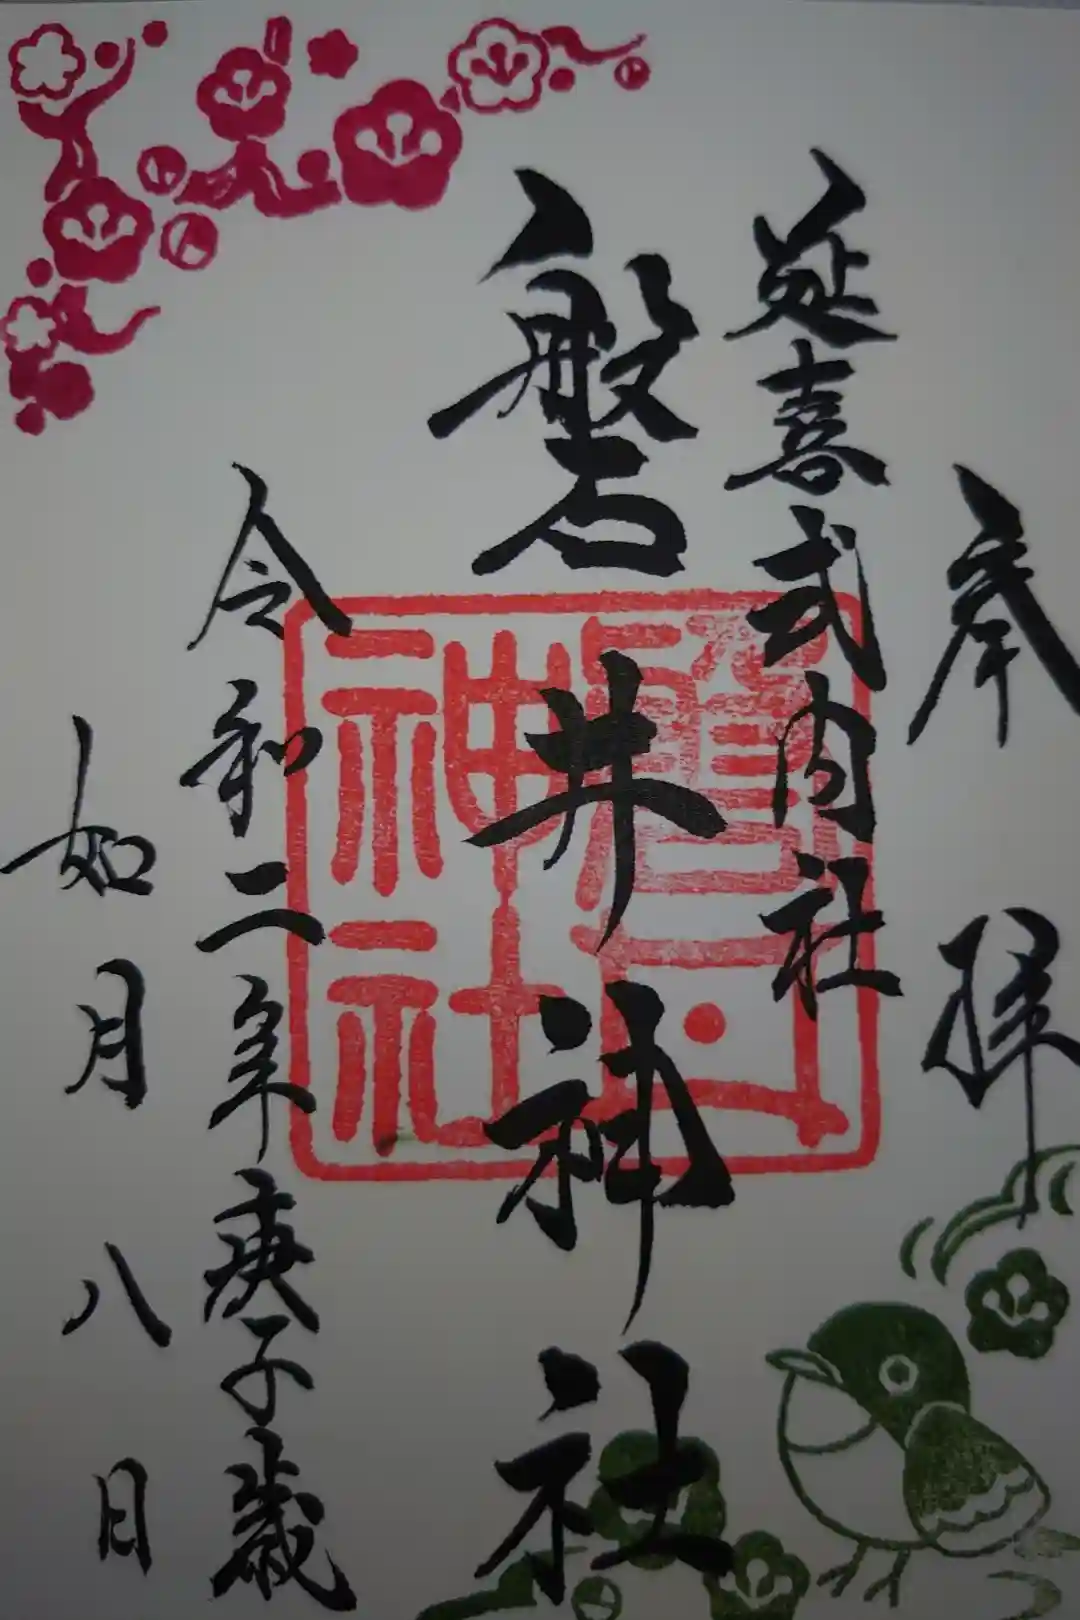 奉拝
延喜式内社
磐井神社
令和二年庚子歳
如月八日
神社